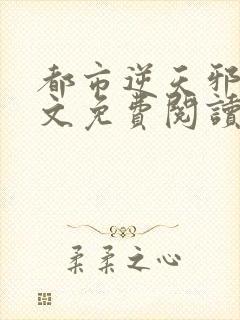 都市逆天邪
文免費閱讀
柔柔之心